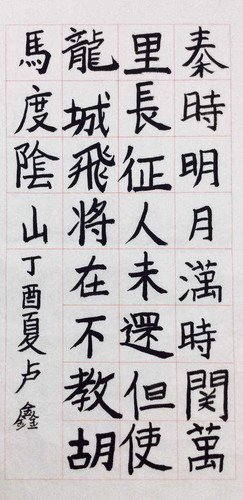 秦時明月満時関萬
里長征人未還但使
龍城飛将在不教胡
馬度陰山丁酉夏卢鑫